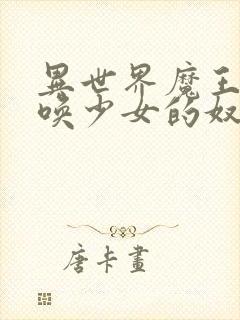 異世界魔王
喚少女的奴
唐卡畫